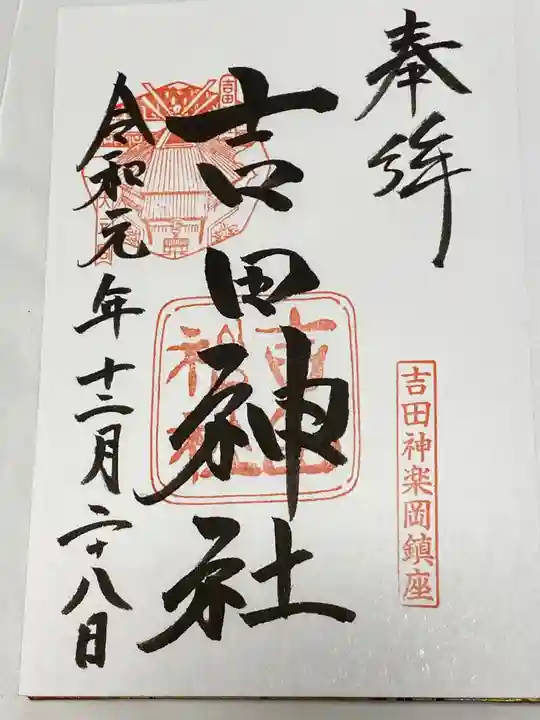 奉拝
吉田神楽岡鎮座
吉田神社
吉田神社
令和元年十二月二十八日
吉田